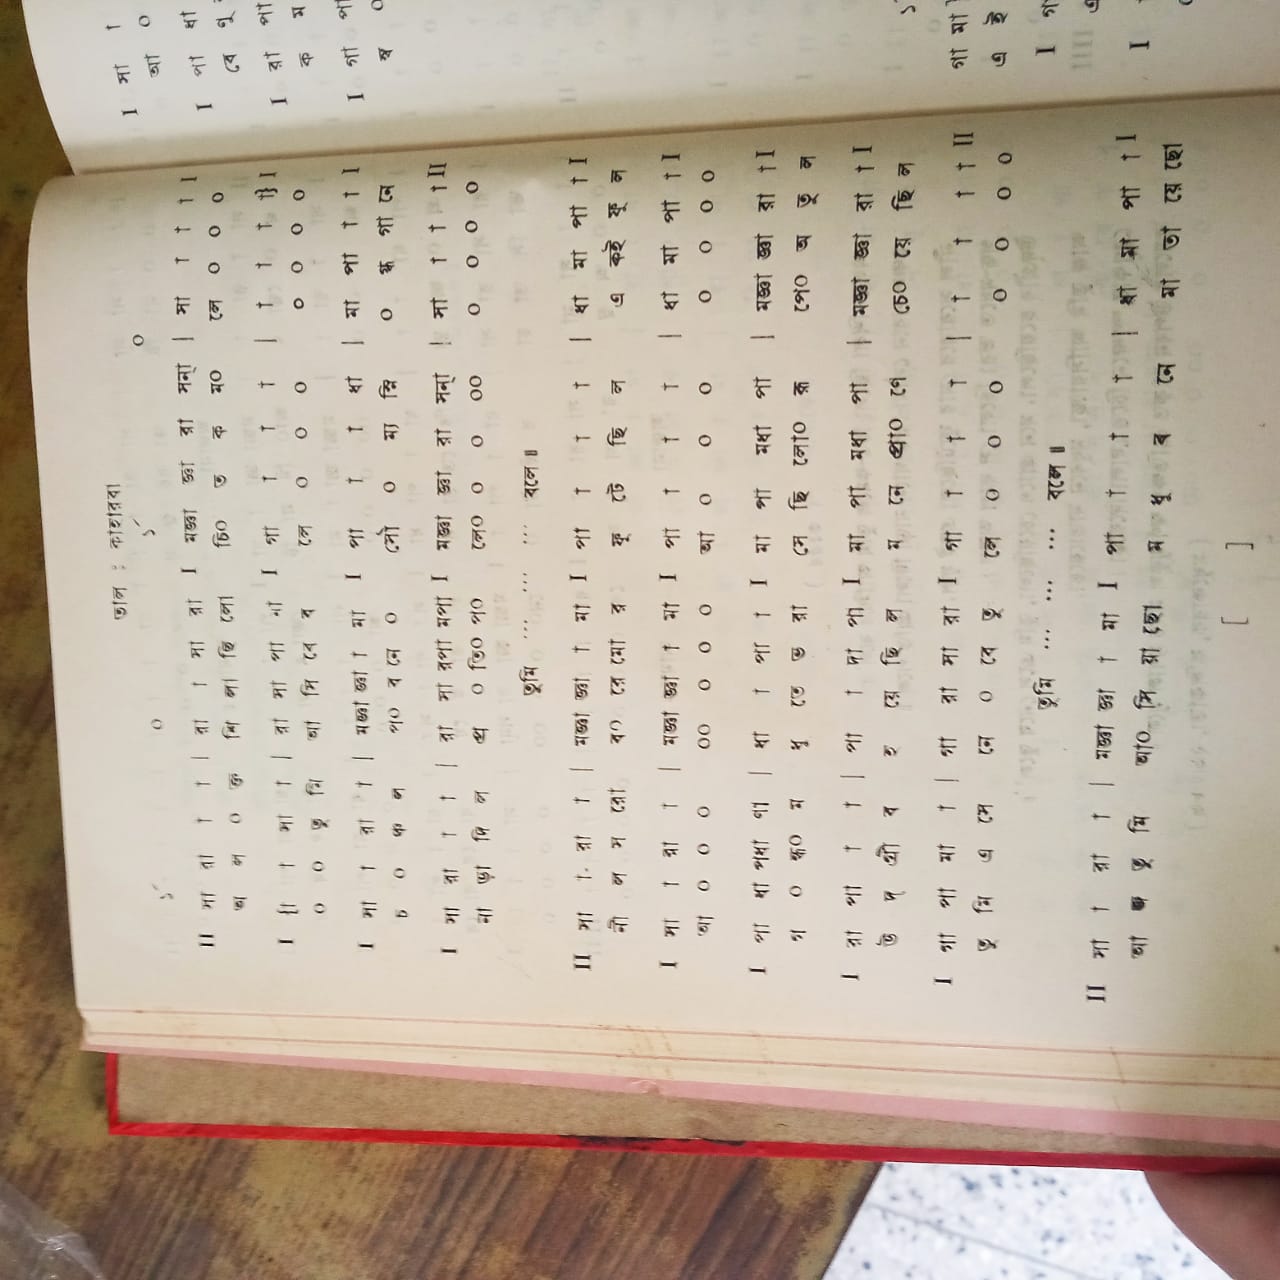 তাল : কাহারবা
১́ ০ ১́ ০
II সা রা া া | রা া সা রা I মজ্ঞা জ্ঞা রা সন্‌া | সা া া া I
অ ল ০ ক্ত নি লা ছি লো চি০ ত ক ম০ লে ০ ০ ০
I {া া সা া | রা মা পা ণা I পা া া া | া া া া} I
০ ০ তু মি আ সি বে ব লে ০ ০ ০ ০ ০ ০ ০
I সা া রা া | মজ্ঞা জ্ঞা া মা I পা া া ধা | মা পা া া I
চ ০ ঞ্চ ল প০ ব নে ০ সৌ ০ ম্য স্নি ০ গ্ধ গা নে
I সা রা া া | রা সা রপা মপা I মজ্ঞা জ্ঞা রা সন্‌া | সা া া া II
না ড়া দি ল প্র ০ তি০ প০ লে০ ০ ০ ০০ ০ ০ ০ ০
তুমি ... ... বলে॥
II সা া রা া | মজ্ঞা জ্ঞা া মা I পা া া া | ধা মা পা া I
নী ল স রো ব০ রে মো র ফু টে ছি ল এ কই ফু ল
I সা া রা া | মজ্ঞা জ্ঞা া মা I পা া া া | ধা মা পা া I
আ ০ ০ ০ ০০ ০ ০ ০ আ ০ ০ ০ ০ ০ ০ ০
I পা ধা পধা ণা | ধা া পা া I মা পা মধা পা | মজ্ঞা জ্ঞা রা া I
গ ০ ন্ধ০ ম ধু তে ভ রা সে ছি লো০ রূ পে০ অ তু ল
I রা পা া া | পা া দা পা I মা পা মধা পা | মজ্ঞা জ্ঞা রা া I
উ দ্ গ্রী ব হ য়ে ছি ল ম নে প্রা০ ণে চে০ য়ে ছি ল
I পা পা মা া | পা রা সা রা I পা া া া | া া া া II
তু মি এ সে নে ০ বে তু লে ০ ০ ০ ০ ০ ০ ০
তুমি ... ... বলে॥
II সা া রা া | মজ্ঞা জ্ঞা া মা I পা া া া | ধা মা পা া I
আ জ তু মি আ০ সি য়া ছো ম ধু ব নে মা তা য়ে ছো